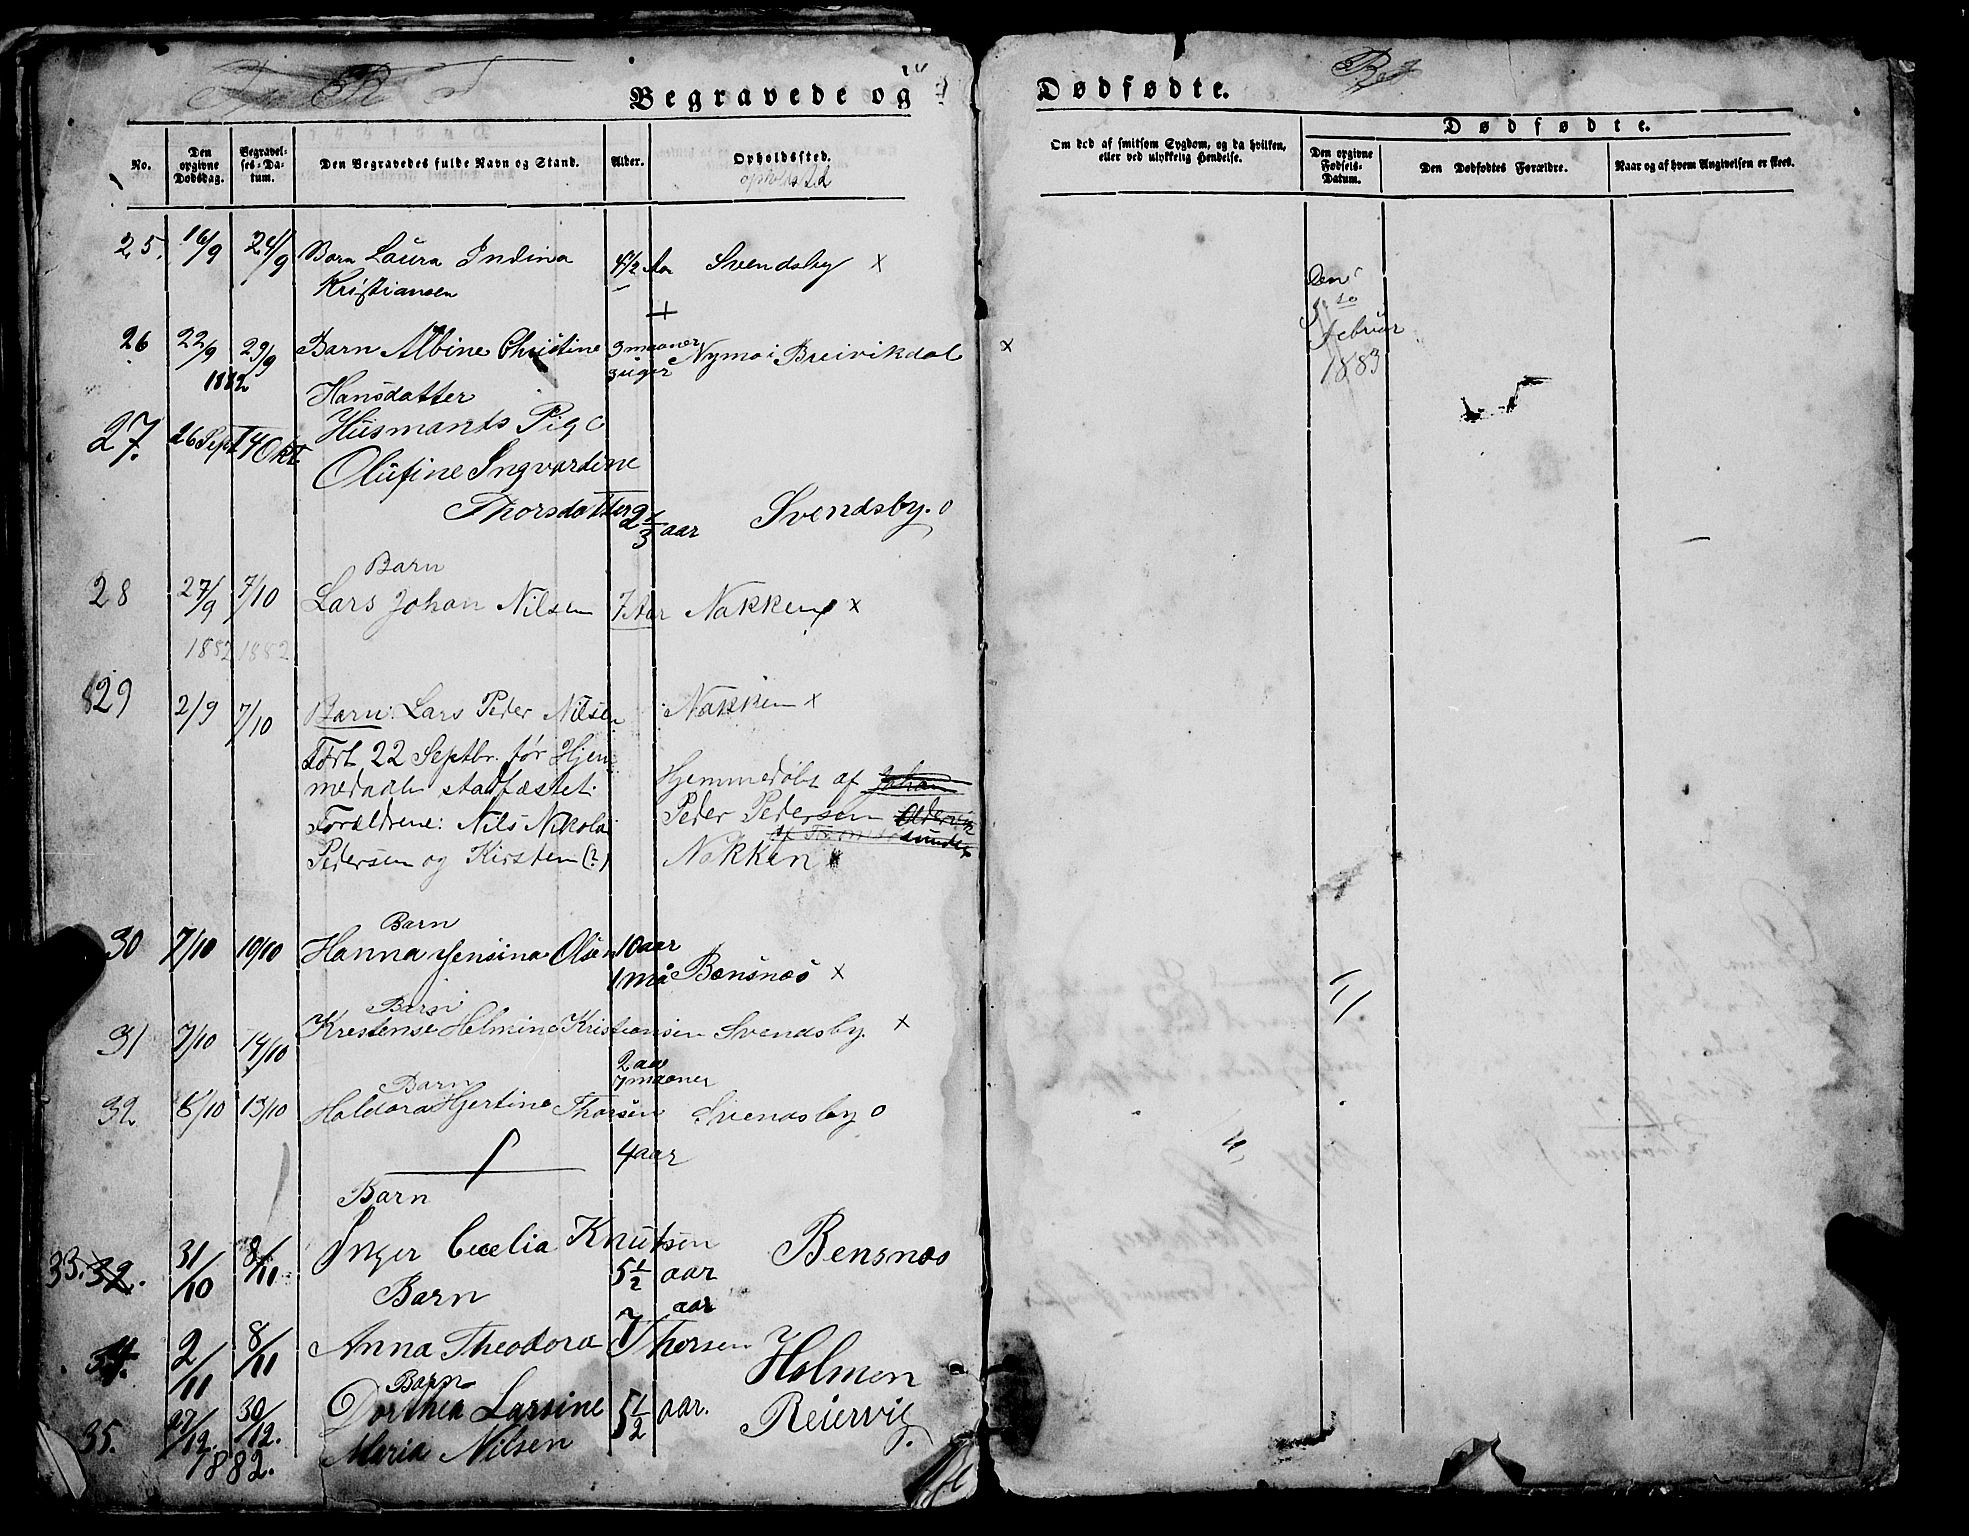 Begravede og
No.
Den opgivne Dødsdag.
Begravelses-Datum.
Den Begravedes fulde Navn og Stand.
Alder.
Opholdssted.
opholdsted
25. 16/9 24/9 Barn Laura Indina 4 1/2 Aar Svendsby x
Kristiansen
+
26 22/9 29/9 Barn Albine Christine 3 maaner Nymo i Breivikdal x
1882 3 uger
Hansdatter
27. 26 Sept 14 Okt. Husmands Pige
Olufine Ingvardine
Thorsdatter 2 1/3 aar Svendsby. o
Barn
28 27/9 7/10 Lars Johan Nilsen 7 Aar Nakken x
1882 1882
29 2/9 7/10 Barn: Lars Peder Nilsen Nakken x
Født 22 Septbr. før Hjem
medaab stadfæstet. Hjemmedøbt af Johan
Forældrene: Nils Nikolai Peder Pedersen
Pedersen og Kirsten (?) Nakken x
Barn
30 7/10 19/10 Hanna Jensina Olsen 10 aar
1 må Bensnæs x
Barn
31 7/10 14/10 Krestense Helmine Kristiansen Svendsby. x
2 aar
7 maaner
Barn
32 8/10 13/10 Haldora Hjertine Thorsen Svendsby o
4 aar
Barn
33. 32. 31/10 8/11 Inger Cecelia Knutsen Bensnæs
5 1/2 aar
Barn aar
34. 2/11 8/11 Anna Theodora 7 Thorsen Holmen
Barn
35. 27/12. 30/12. Dorthea Larsine 5 1/2 aar. Reiervig.
Maria Nilsen
1882.
Dødfødte.
Om død af smitsom Sygdom, og da hvilken, eller ved ulykkelig Hendelse.
Dødfødte.
Den opgivne Fødsels-Datum.
Den Dødfødtes Forældre.
Naar og af hvem Angivelsen er skeet.
Den
Februar
1883